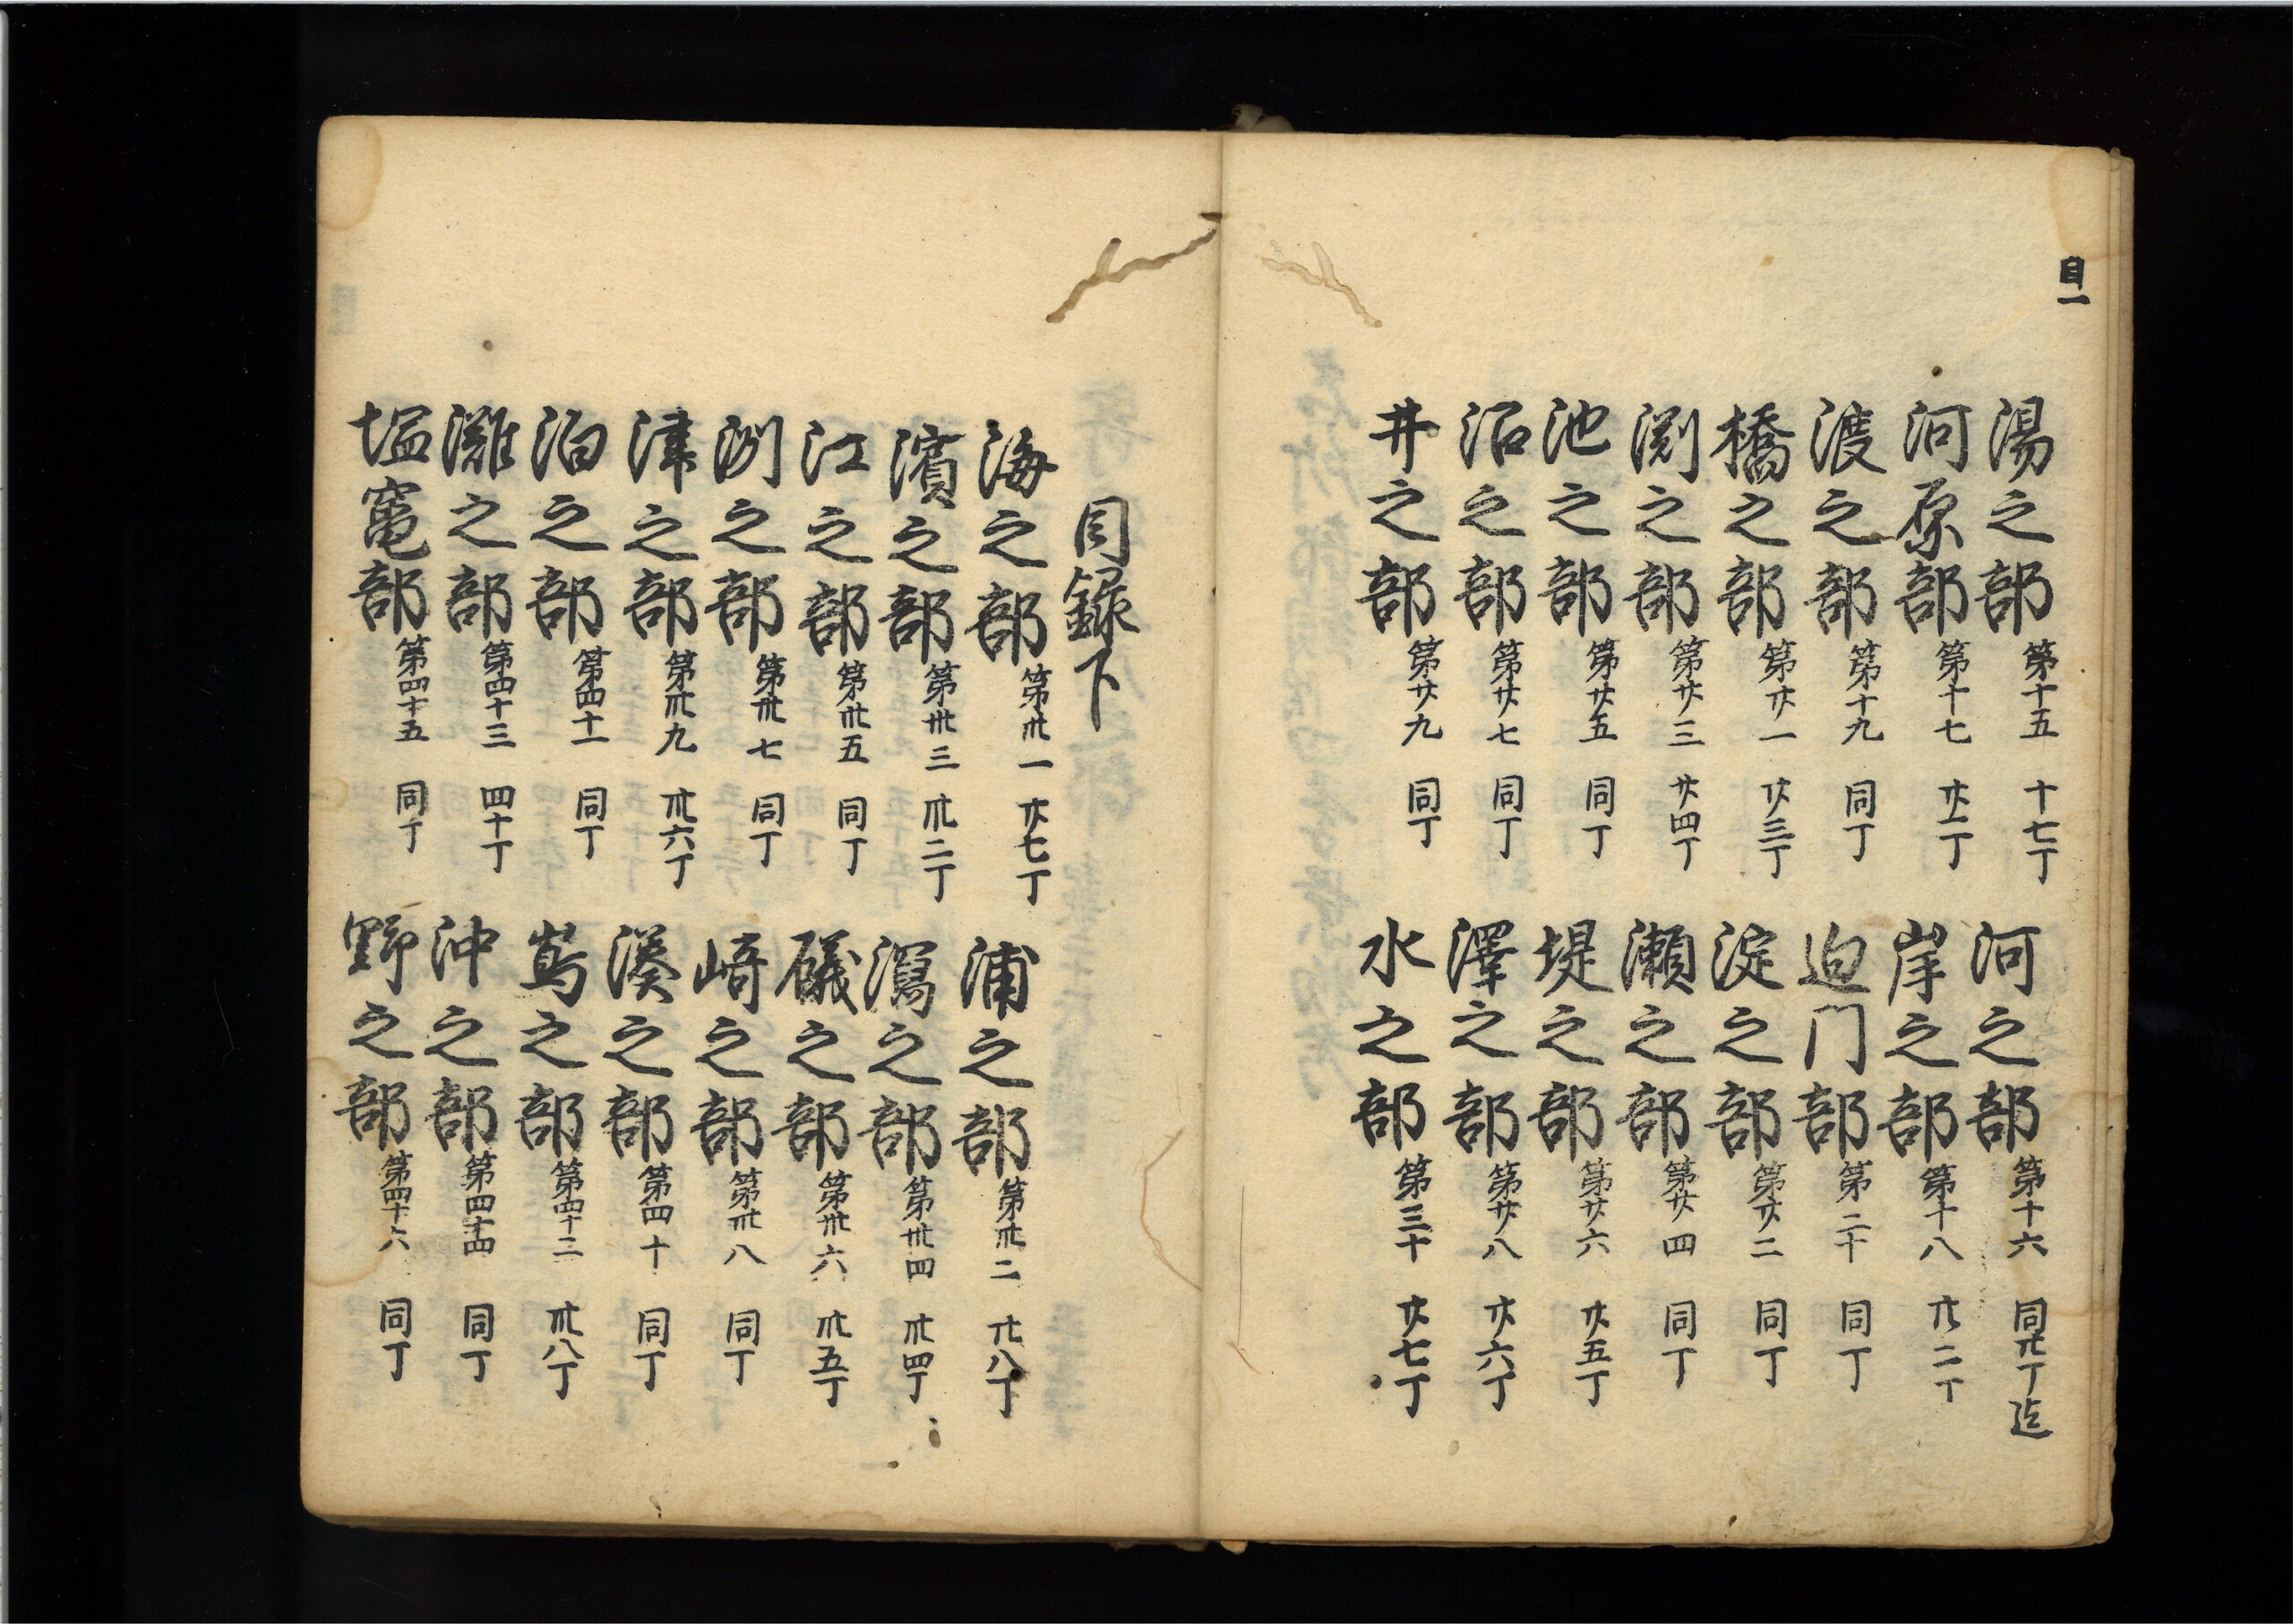 目一
湯之部 第十五 十七丁 河之部 第十六 同丁迄
河原部 第十七 廿二丁 岸之部 第十八 廿二丁
渡之部 第十九 同丁 迫门部 第二十 同丁
橋之部 第廿一 廿三丁 淀之部 第廿二 同丁
渕之部 第廿三 廿四丁 瀬之部 第廿四 同丁
池之部 第廿五 同丁 堤之部 第廿六 廿五丁
沼之部 第廿七 同丁 澤之部 第廿八 廿六丁
井之部 第廿九 同丁 水之部 第三十 廿七丁
目録下
海之部 第卅一 廿七丁 浦之部 第卅二 廿八丁
濱之部 第卅三 卅二丁 瀉之部 第卅四 卅四丁
江之部 第卅五 同丁 礒之部 第卅六 卅五丁
洲之部 第卅七 同丁 﨑之部 第卅八 同丁
津之部 第卅九 卅六丁 湊之部 第四十 同丁
泊之部 第四十一 同丁 嶌之部 第四十二 卅八丁
灘之部 第四十三 四十丁 沖之部 第四十四 同丁
塩竃部 第四十五 同丁 野之部 第四十六 同丁